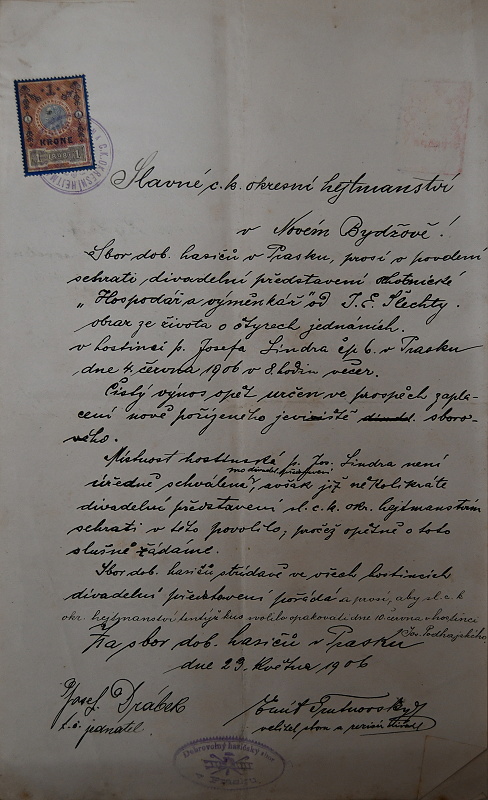 1
KRONE
1898
C.K. OKRESNÍ HEJTM
Slavné c. k. okresní hejtmanství
v Novém Bydžově!
Sbor dob. hasičů v Prasku, prosí o povolení
sehrati divadelní představení
„Hospodář a výměnkář" od J. E. Šlechty.
obraz ze života o čtyrech jednáních.
v hostinci p. Josefa Lindra čp 6. v Prasku
dne 4. června 1906 v 8 hodin večer.
Čistý výnos opět určen ve prospěch zapla-
cení nově pořízeného jeviziště sboro-
vého.
Místnost hostinská p. Jos. Lindra není
pro divadel. představení
úředně schválena, avšak již několikráte
divadelní představení sl. c. k. okr. hejtmanstvím
sehrati v této povolilo, pročež opětně o toto
slušně žádáme.
Sbor dob. hasičů střídavě ve všech hostincích
divadelní představení pořádá a prosí, aby sl. c. k
okr. hejtmanství tentýž kus svolilo opakovati dne 10 června v hostinci
p Jos. Podhajského
Za sbor dob. hasičů v Prasku
dne 23. května 1906
Josef Drábek
t. č. jednatel
Emil Trutnovský
velitel sboru a
Dobrovolný hasičský sbor
v Prasku